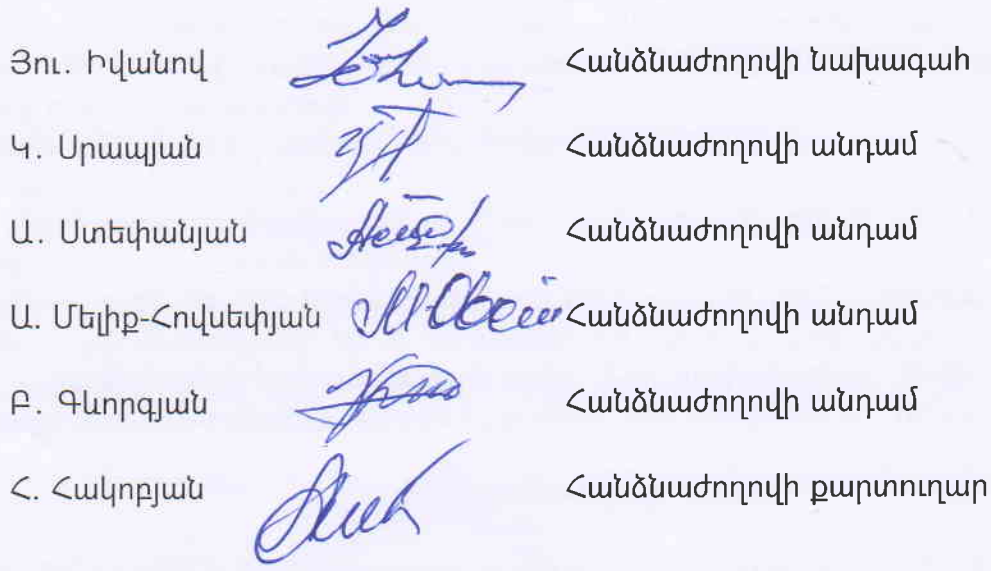 Յու. Իվանով Հանձնաժողովի նախագահ
Կ. Սրապյան Հանձնաժողովի անդամ
Ա. Ստեփանյան Հանձնաժողովի անդամ
Ա. Մելիք-Հովսեփյան Հանձնաժողովի անդամ
Բ. Գևորգյան Հանձնաժողովի անդամ
Հ. Հակոբյան Հանձնաժողովի քարտուղար